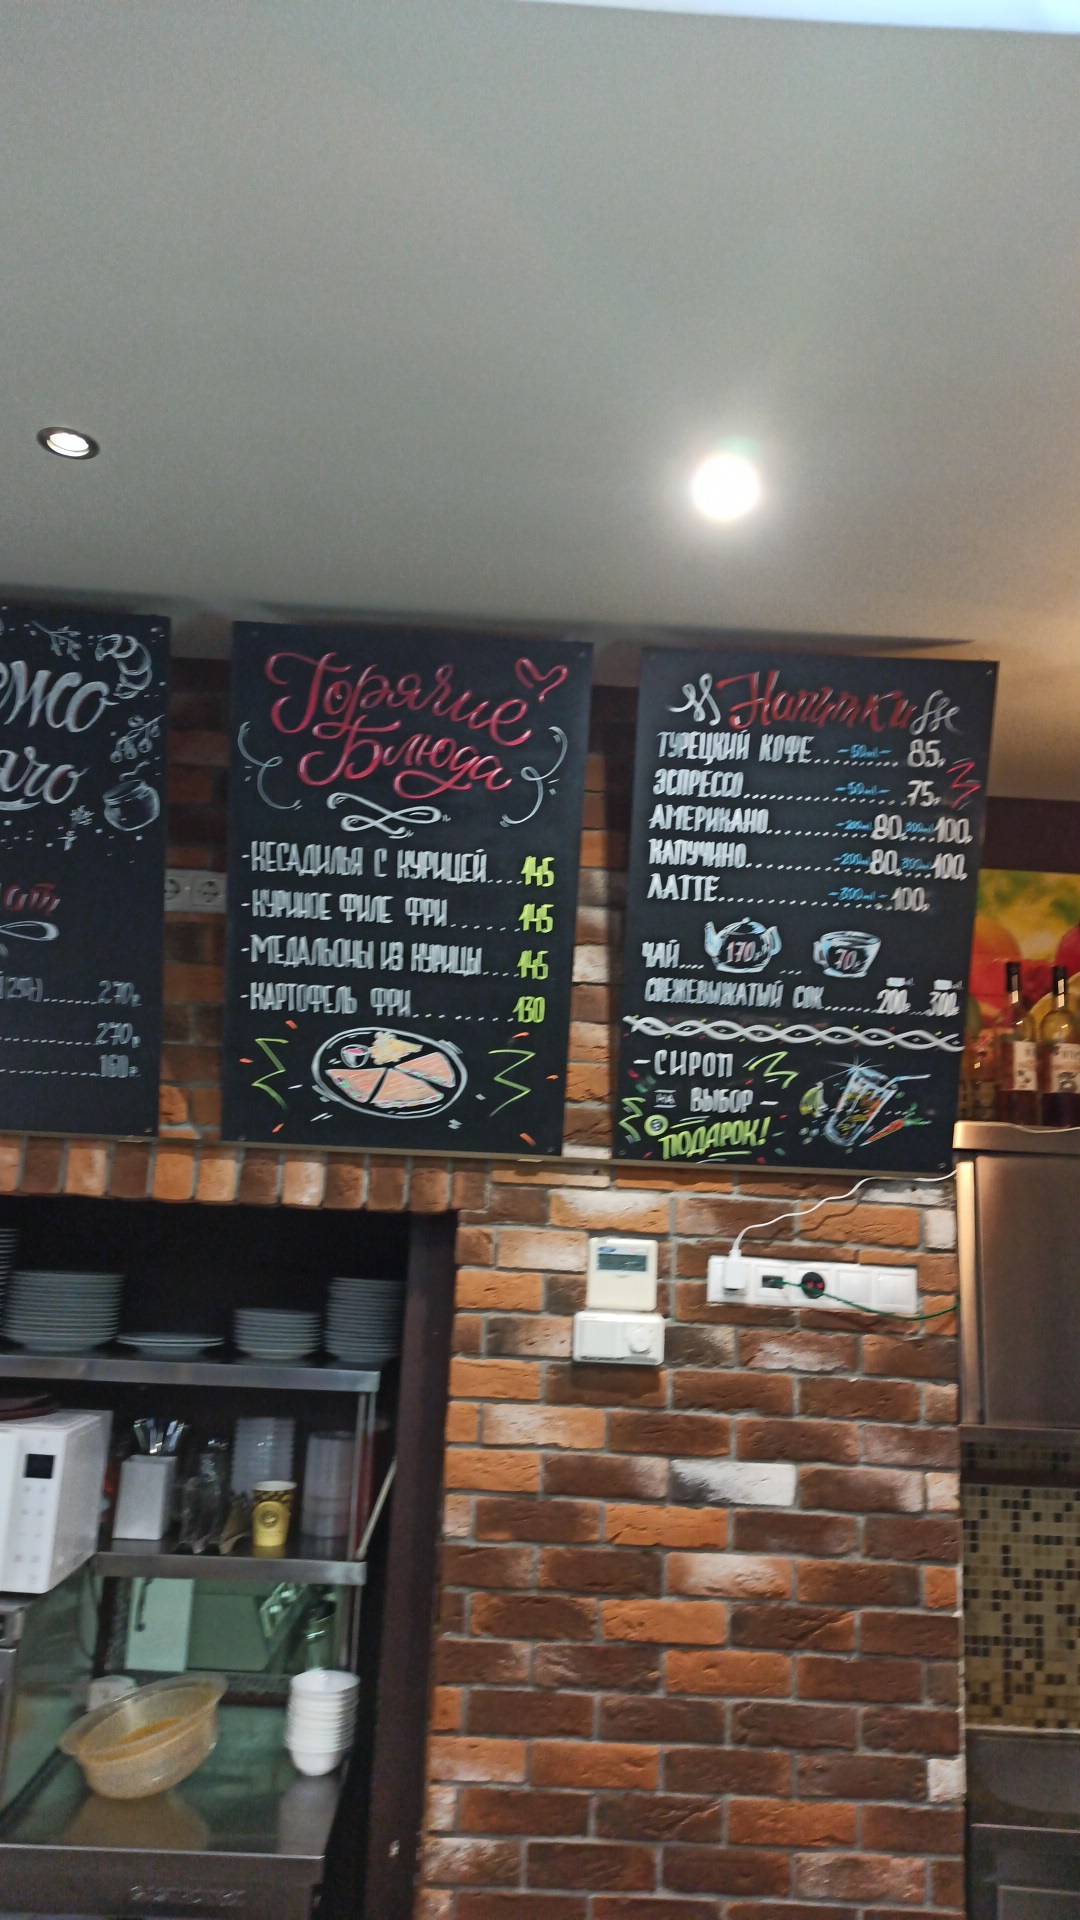 Горячие
Блюда
-КЕСАДИЛЬЯ С КУРИЦЕЙ....145
-КУРИНОЕ ФИЛЕ ФРИ......145
-МЕДАЛЬОНЫ ИЗ КУРИЦЫ....145
-КАРТОФЕЛЬ ФРИ.........130
Напитки
ТУРЕЦКИЙ КОФЕ.. -50ml- 85р
ЭСПРЕССО....... -50ml- 75р
АМЕРИКАНО...... -200ml- 80р -300ml- 100р
КАПУЧИНО....... -200ml- 80р -300ml- 100р
ЛАТТЕ.......... -300ml- 100р
ЧАЙ.... 170р ... 70р
СВЕЖЕВЫЖАТЫЙ СОК..... 200р 300р
-СИРОП
НА ВЫБОР-
ПОДАРОК!
270р
270р
160р